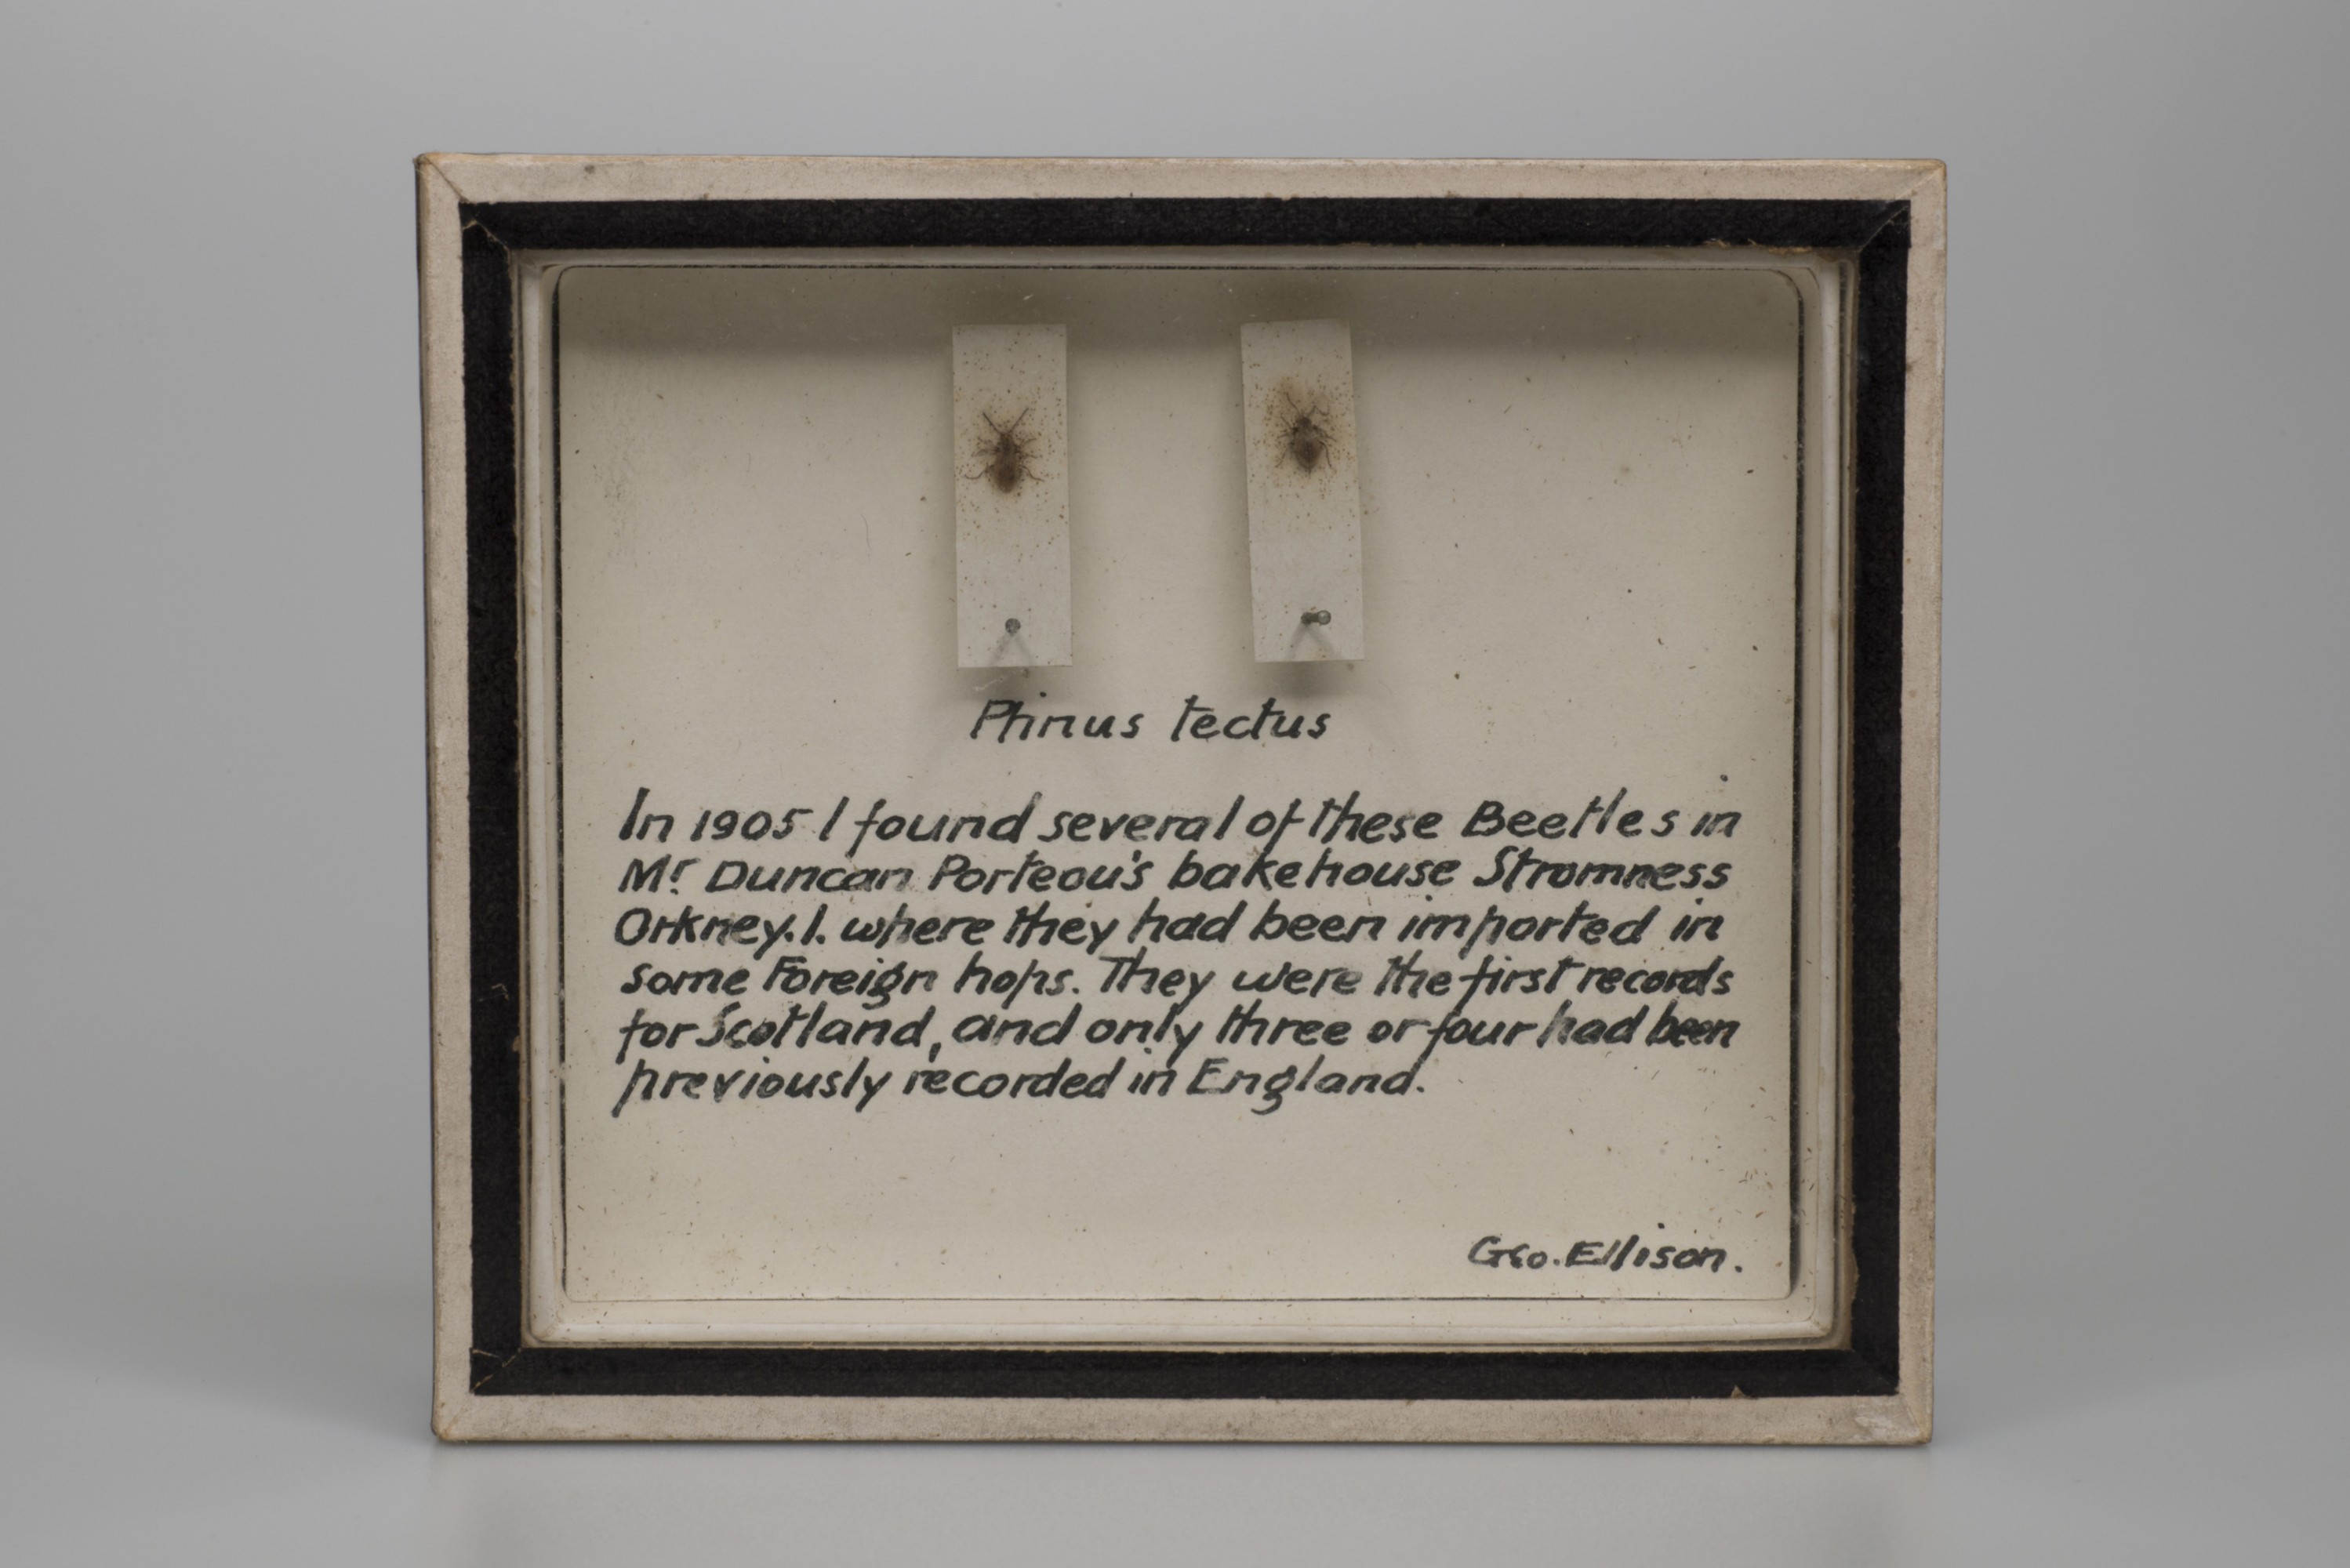 Ptinus tectus
In 1905 I found several of these Beetles in
Mr. Duncan Porteou's bakehouse Stromness
Orkney. I. where they had been imported in
some Foreign hops. They were the first records
for Scotland, and only three or four had been
previously recorded in England.
Geo. Ellison.